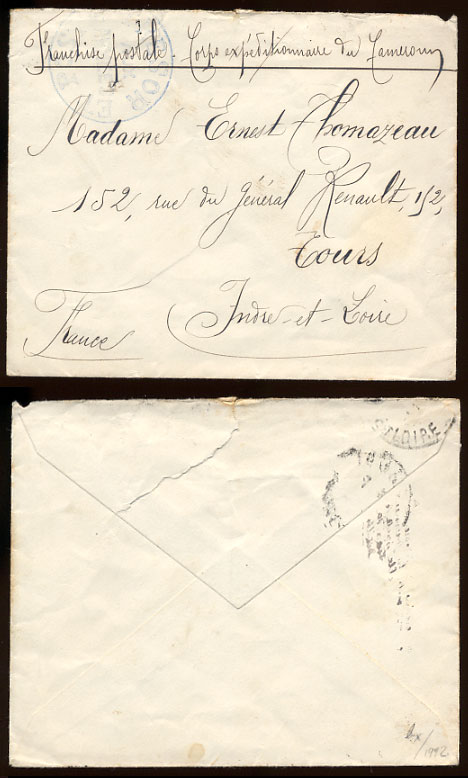 Franchise postale Corps expéditionnaire du Cameroun
Madame Ernest Thomazeau
152, rue du Général Renault, 152,
Tours
Indre-et-Loire
France